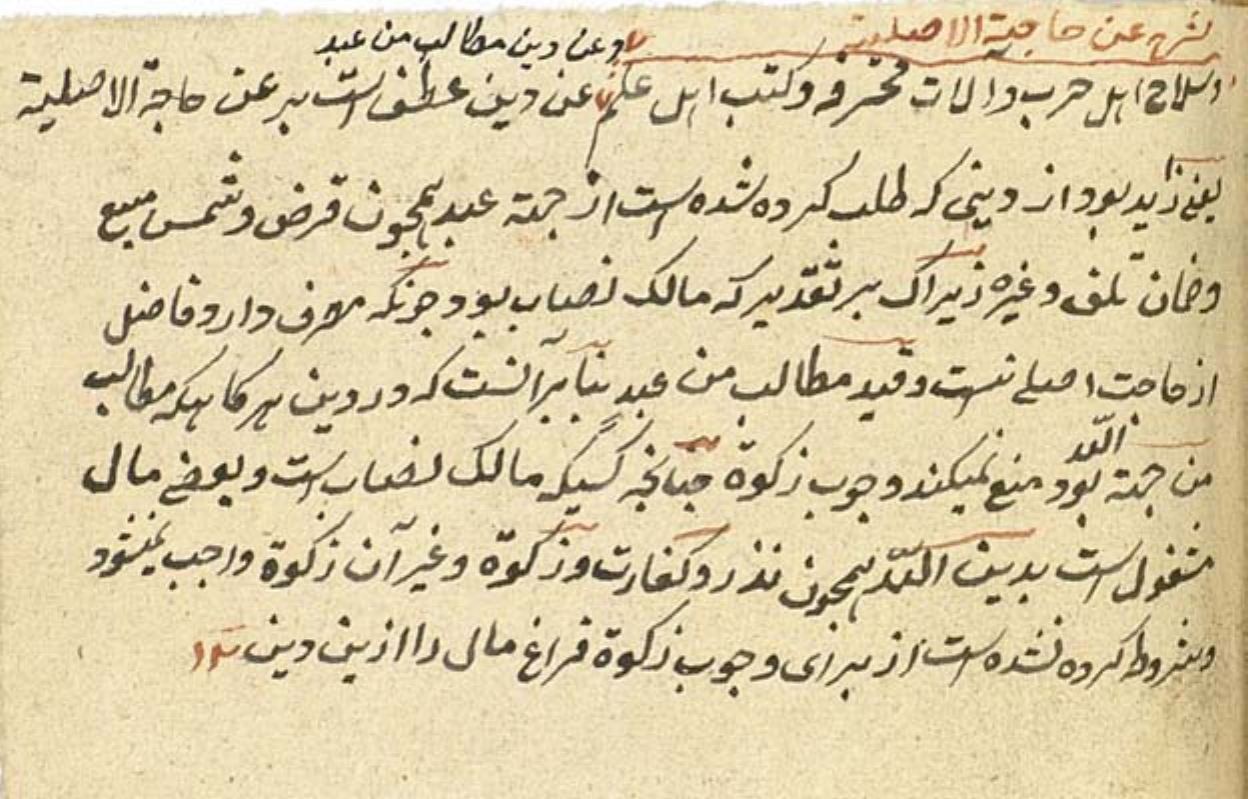 شرح عن حاجته الاصلية وعن دين مطالب من عبد
وسلاح اهل حرب والات محترفه وكتب اهل علم عن دين عطف است بر عن حاجة الاصلية
يعنے زايد بود از دينی كه طلب كرده شده است از جهة عبد همچون قرض وثمن مبيع
وضمان تلف وغيره زيراك بر تقدير كه مالک نصاب بود چونكه صرف دارد فاضل
از حاجت اصلے نيست وقيد مطالب من عبد بنا بر آنست كه در دين هر كاهيكه مطالب
من جهة الله بود منع نميكند وجوب زكوة چنانچه كسيكه مالک نصاب است وبعضے مال
مشغول است بدين الله همچون نذر وكفارت وزكوة وغير آن زكوة واجب ميشود
ومشروط كرده نشده است از برای وجوب زكوة فراغ مالی را ازين دين